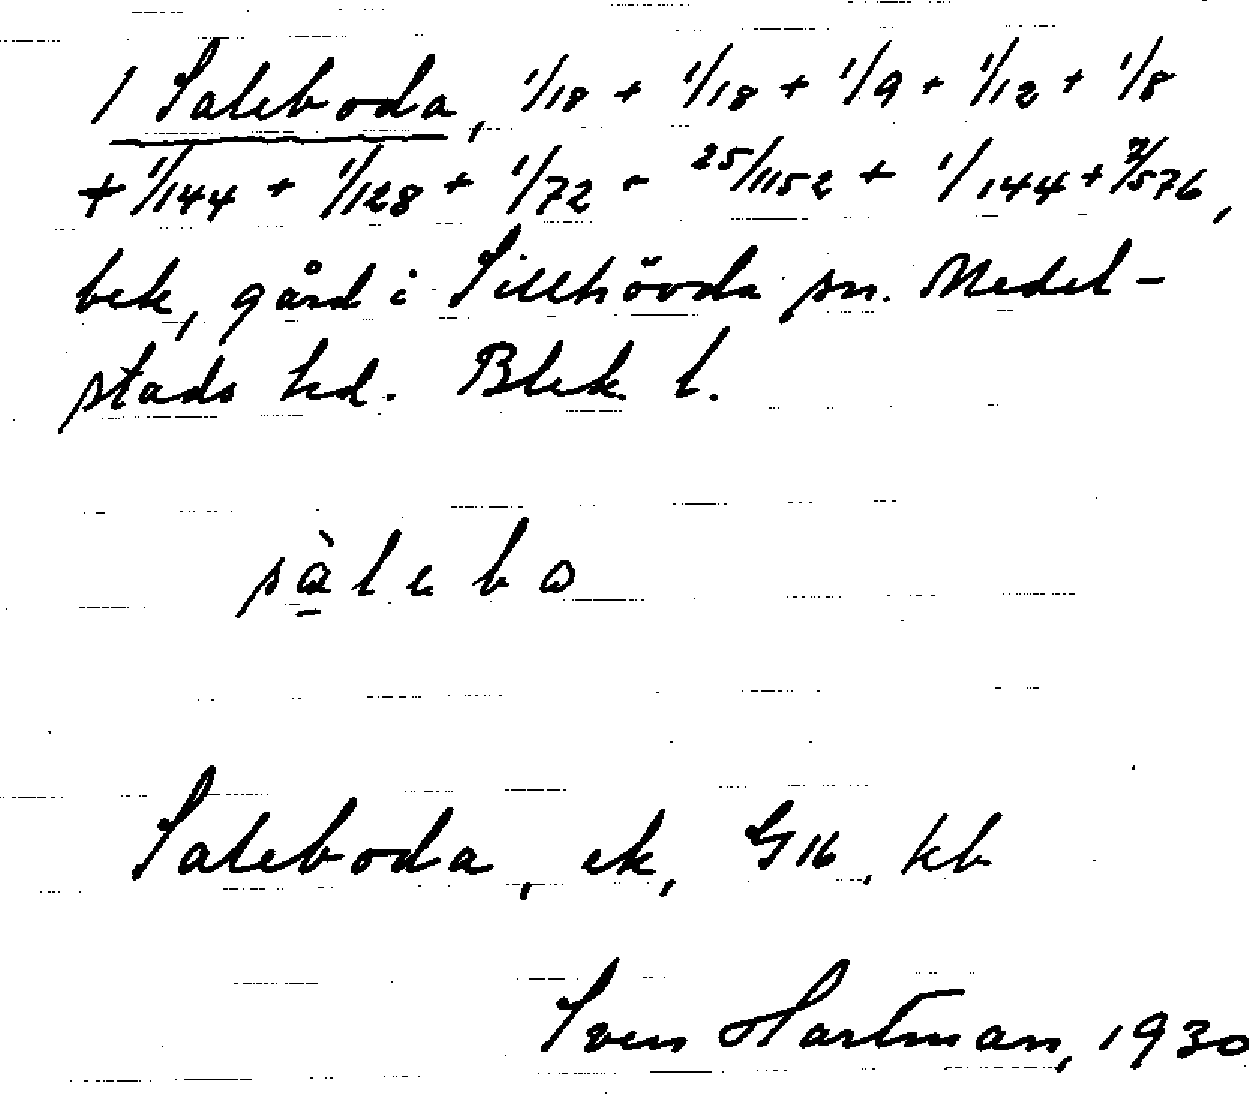 1 Saleboda, 1/18 + 1/18 + 1/9 + 1/12 + 1/8
+ 1/144 + 1/128 + 1/72 + 25/1152 + 1/144 + 7/576,
bek, gård i Sillhövda sn. Medel-
stads hd. Blek. l.
sàlebo
Saleboda, ek, G16, kb
Sven Hartman, 1930